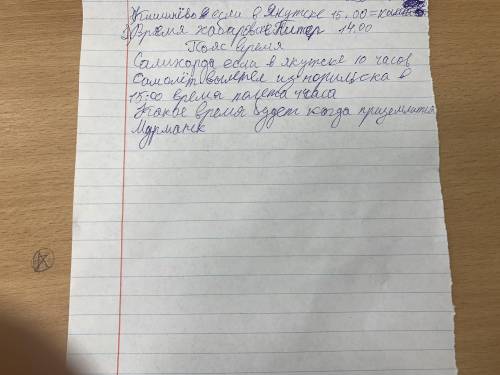 Кишинёво если в Якутске 15.00 =
2) Время хабаровске Питер 14.00
Пояс время
Салихорда если в якутске 10 часов
Самолёт вылетел из норильска в
15.00 время палета 4 часа
Какое время будет когда приземлится
Мурманск